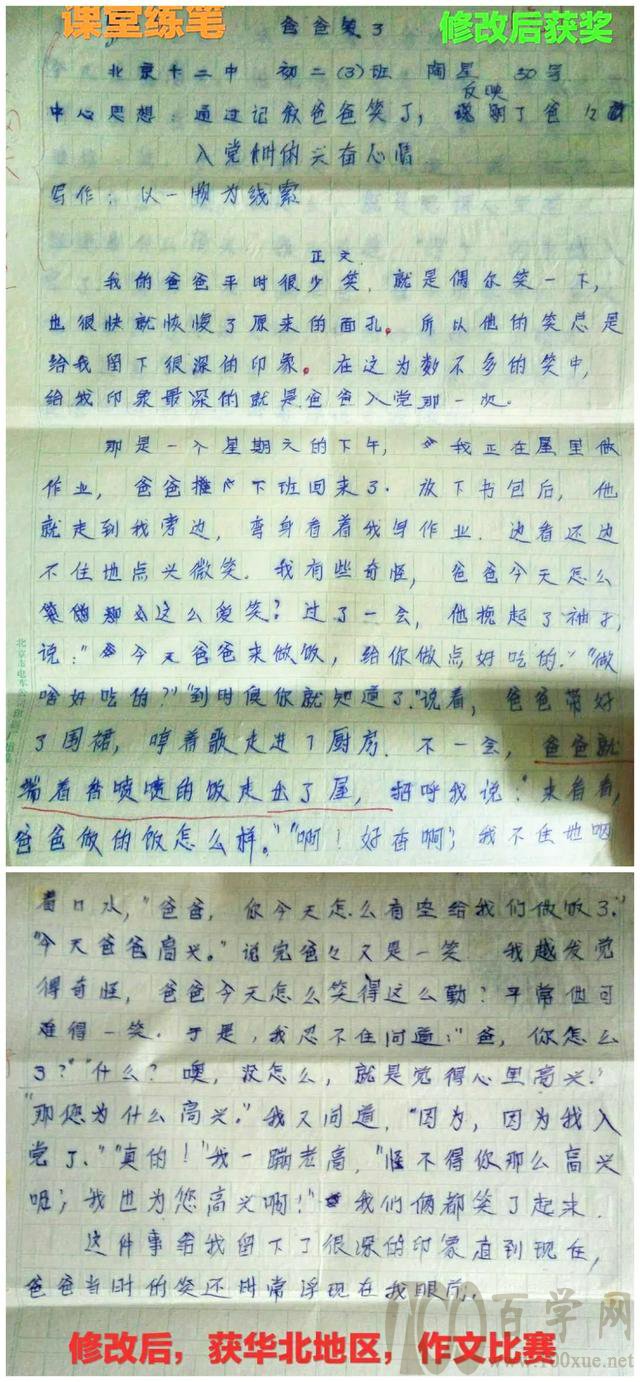 课堂练笔
修改后获奖
爸爸笑了
北京十二中 初二(3)班 陶星 30号
反映
中心思想：通过记叙爸爸笑了，说明了爸々
入党时的兴奋心情
写作：以一物为线索
正文
我的爸爸平时很少笑，就是偶尔笑一下，
也很快就恢愎了原来的面孔。所以他的笑总是
给我留下很深的印象。在这为数不多的笑中，
给我印象最深的就是爸爸入党那一次。
那是一个星期天的下午，我正在屋里做
作业，爸爸推门下班回来了．放下书包后，他
就走到我旁边，弯身看着我写作业．边看还边
不住地点头微笑．我有些奇怪，爸爸今天怎么
这么爱笑？过了一会，他挽起了袖子，
说："今天爸爸来做饭，给你做点好吃的．""做
啥好吃的？""到时侯你就知道了．"说着，爸爸带好
了围裙，哼着歌走进了厨房．不一会，爸爸就
端着香喷喷的饭走出了屋，招呼我说："来看看，
爸爸做的饭怎么样。""啊！好香啊；我不住地咽
北京市电车公司
着口水，"爸爸，你今天怎么有空给我们做饭了．"
"今天爸爸高兴。"说完爸々又是一笑．我越发觉
得奇怪，爸爸今天怎么笑得这么勤？平常他可
难得一笑．于是，我忍不住问道："爸，你怎么
了？""什么？噢，没怎么，就是觉得心里高兴．"
"那您为什么高兴．"我又问道，"因为，因为我入
党了．""真的！"我一蹦老高，"怪不得你那么高兴
呢；我也为您高兴啊！"我们俩都笑了起来．
这件事给我留下了很深的印象直到现在，
爸爸当时的笑还时常浮现在我眼前．
修改后，获华北地区，作文比赛
100百学网
www.100xue.net